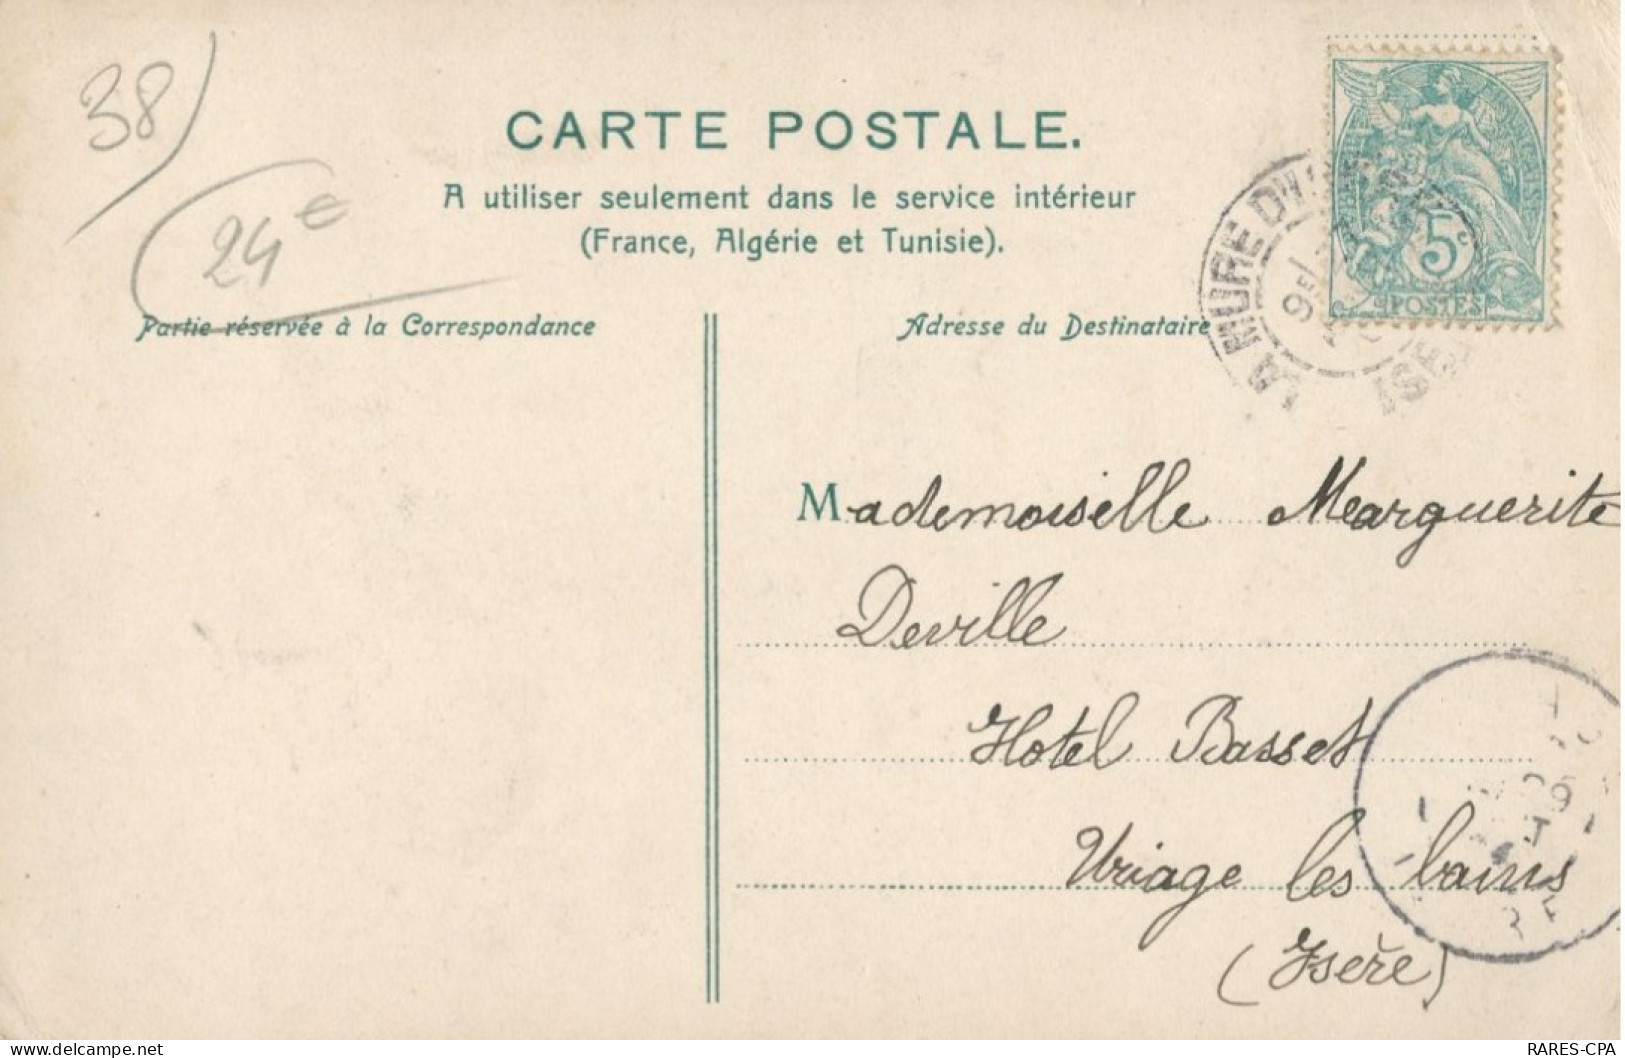 38
24€
CARTE POSTALE.
A utiliser seulement dans le service intérieur
(France, Algérie et Tunisie).
Partie réservée à la Correspondance
Adresse du Destinataire
LA MURE
ISÈRE
5c
POSTES
Mademoiselle Marguerite
Deville
Hotel Basset
Uriage les bains
(Isère)
RARES-CPA